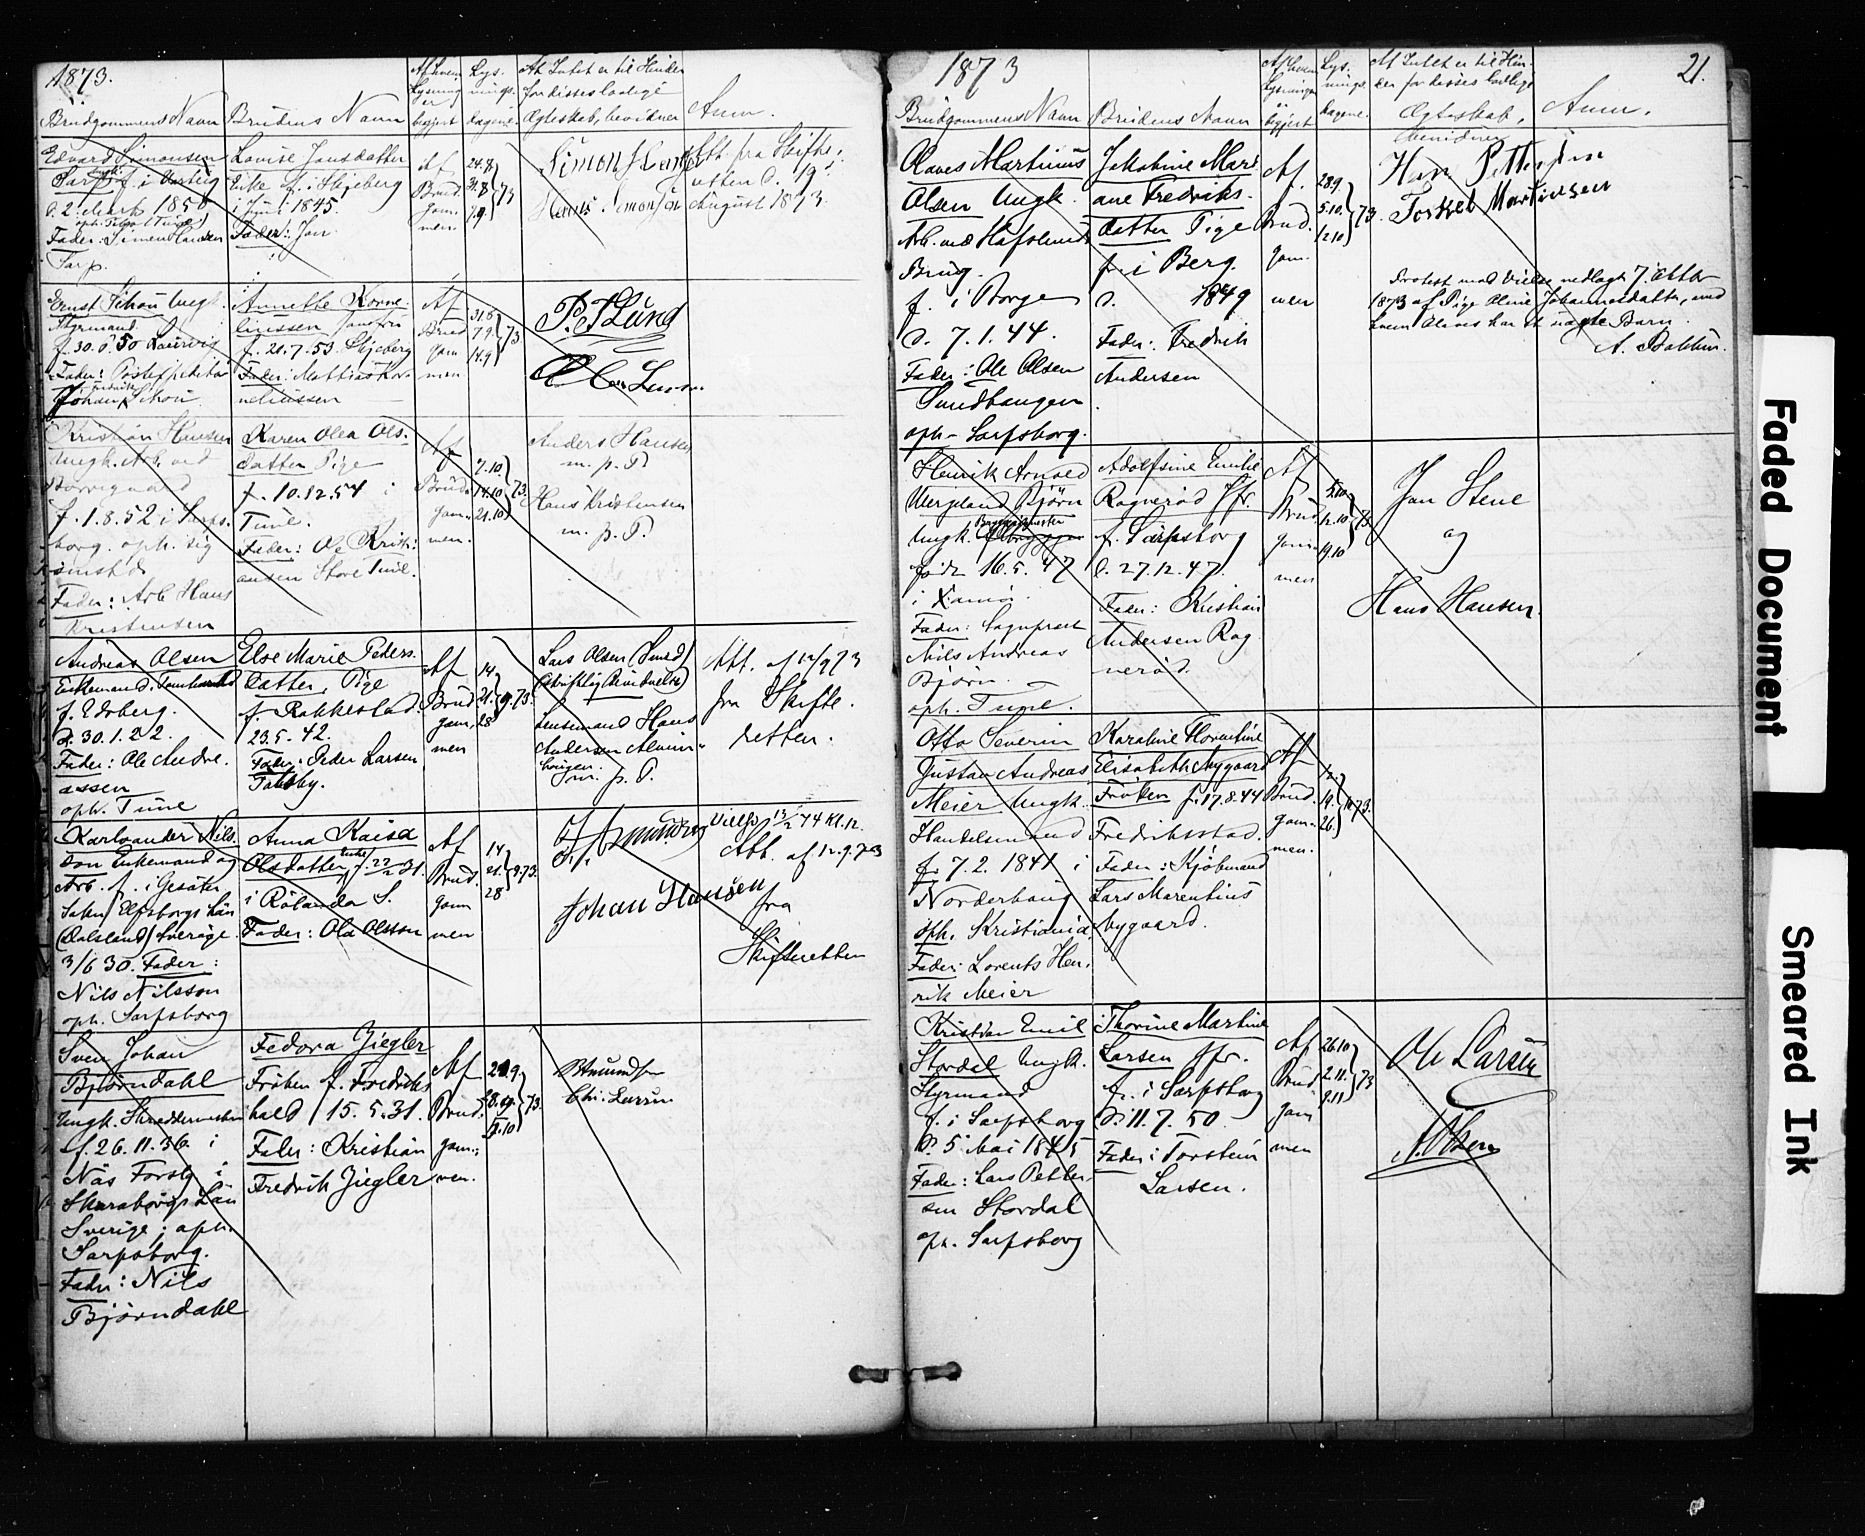 1873.
Brudgommens Navn
Brudens Navn
Af hvem
Lysning
er
begjert
Lys-
nings-
dagene.
At Intet er til Hinder
for disses lovlige
Ægteskab, bevidner
Anm.
Edvard Simonsen
Sarpsb. f. i Varteig
d. 2. Marts 1850
oph. Tune
Fader: Simon Hansen
Tarp.
Lovise Jansdatter
Enke f. i Skjeberg
i Juni 1845.
Fader: Jan
Af
Brud-
gom-
men.
24.8
31.8
7.9
73
Simon Han
Hans Simonsen
Att. fra Skifte-
retten d. 19
August 1873.
Ernst Schou Ungk.
Styrmand
f. 30.6.50 Laurvig
Fader: Postexpeditør
Johan Fredrik Schou
Annette Korne-
liussen
f. 21.7.53 Skjeberg
Fader: Mathias Kor-
neliussen
Af
Brud
gom
men
31.8
7.9
14.9
73
P. T. Lund
Kristian Hansen
Ungk. Arb. ved
Borregaard
f. 1.8.52 i Sarps-
borg. oph. sig
smstd.
Fader: Arb. Hans
Kristensen
Karen Olea Ols-
datter Pige
f. 10.12.54 i
Tune.
Fader: Ole Kristi-
ansen Store Tune.
Af
Brud-
gom-
men.
7.10
14.10
21.10
73.
Anders Hansen
m. p. P.
Hans Kristensen
m. p. P.
Andreas Olsen
Enkemand, Tomtearbd
f. Edsberg.
d. 30.1.22.
Fader: Ole Andre-
assen
oph. Tune
Else Marie Peders-
datter, Pige
f. Rakkestad.
23.5.42.
Fader: Peder Larsen
Taksby.
Af
Brud
gom-
men
14.
21.
28
9.73.
Lars Olsen (Smed)
(skriftlig Bevidnelse)
Lensmand Hans
Andersen Alvim-
haugen.
m. p. P.
Att. af 12/9 73
fra Skifte-
retten.
Karl Vander Nils-
son Enkemand og
Arb. f. i Gesäter
Sokn, Elfsborgs Län
(Dalsland) Sverige
3/6 30. Fader:
Nils Nilsson
oph. Sarpsborg
Anna Kaisa
Olsdatter Enke f. 22/2 31.
i Rölanda S.
Fader: Ola Olsson
Af
Brud-
gom
men
14
21.
28
9.73.
Johan Hansen
Viet 13/2 74 Kl. 12.
Att. af 12.9.73
fra
Skifteretten
Sven Johan
Bjørndahl
Ungk. Skreddermester
f. 26.11.36 i
Näs Forsby i
Skaraborgs Län
Sverige; oph.
Sarpsborg.
Fader: Nils
Bjørndahl
Fedora Ziegler
Frøken f. Fredriks-
hald 15.5.31.
Fader: Kristian
Fredrik Ziegler
Af
Brud-
gom-
men.
21.9
28.9
5.10
73.
Amundsen
Chr. Larsen
1873
21.
Brudgommens Navn
Brudens Navn
Af hvem
Lysningen
begjert
Lys-
nings-
dagene.
At Intet er til Hin-
der for disses lovlige
Ægteskab,
bevidner
Anm.
Olaves Martinius
Olsen Ungk.
Arb. ved Hafslunds
Brug.
f. i Borge
d. 7.1.44.
Fader: Ole Olsen
Sundhaugen
oph. Sarpsborg.
Jakobine Mari-
ane Fredriks-
datter Pige
f. i Berg
d. 1849
Fader: Fredrik
Andersen
Af
Brud-
gom-
men
28.9
5.10.
12.10
73.
Hans Pettersen
Torkel Martinsen
Protest mod Vielse nedlagt 7. Oktbr
1873 af Pige Oline Johannesdatter, med
hvem Olaves har et uægte Barn.
A. Bakken.
Henrik Arnold
Wergeland Bjørn
Ungk. Bogtrykker
født 16.5.47
i
Fader: Sogneprest
Nils Andreas
Bjørn.
oph. Tune.
Adolfine Emilie
Ragnerød Jfr.
f. Sarpsborg
d. 27.12.47.
Fader: Kristian
Andersen Rag-
nerød.
Af
Brud-
gom-
men
5.10
12.10
19.10
73
Jan Stene
og
Hans Hansen.
Otto Severin
Gustav Andreas
Meier Ungk.
Handelsmand
f. 7.2.1841 i
Norderhaug
oph. Kristiania.
Fader: Lorents Hen-
rik Meier
Karoline Florentine
Elisabeth Nygaard
Frøken f. 17.8.44
Fredriksstad.
Fader: Kjøbmand
Lars Marentius
Nygaard.
Af
Brud-
gom-
men.
12.
19.
26.
10.73.
Kristian Emil
Stordal Ungk.
Styrmand
f. i Sarpsborg
d. 5 Mai 1845
Fader: Lars Petter-
sen Stordal
oph. Sarpsborg
Thorine Martine
Larsen Jfr.
f. i Sarpsborg
d. 11.7.50.
Fader: Torstein
Larsen.
Af
Brud
gom
men
26.10
2.11.
9.11
73
Ole Larsen
A. Olsen
Faded Document
Smeared Ink